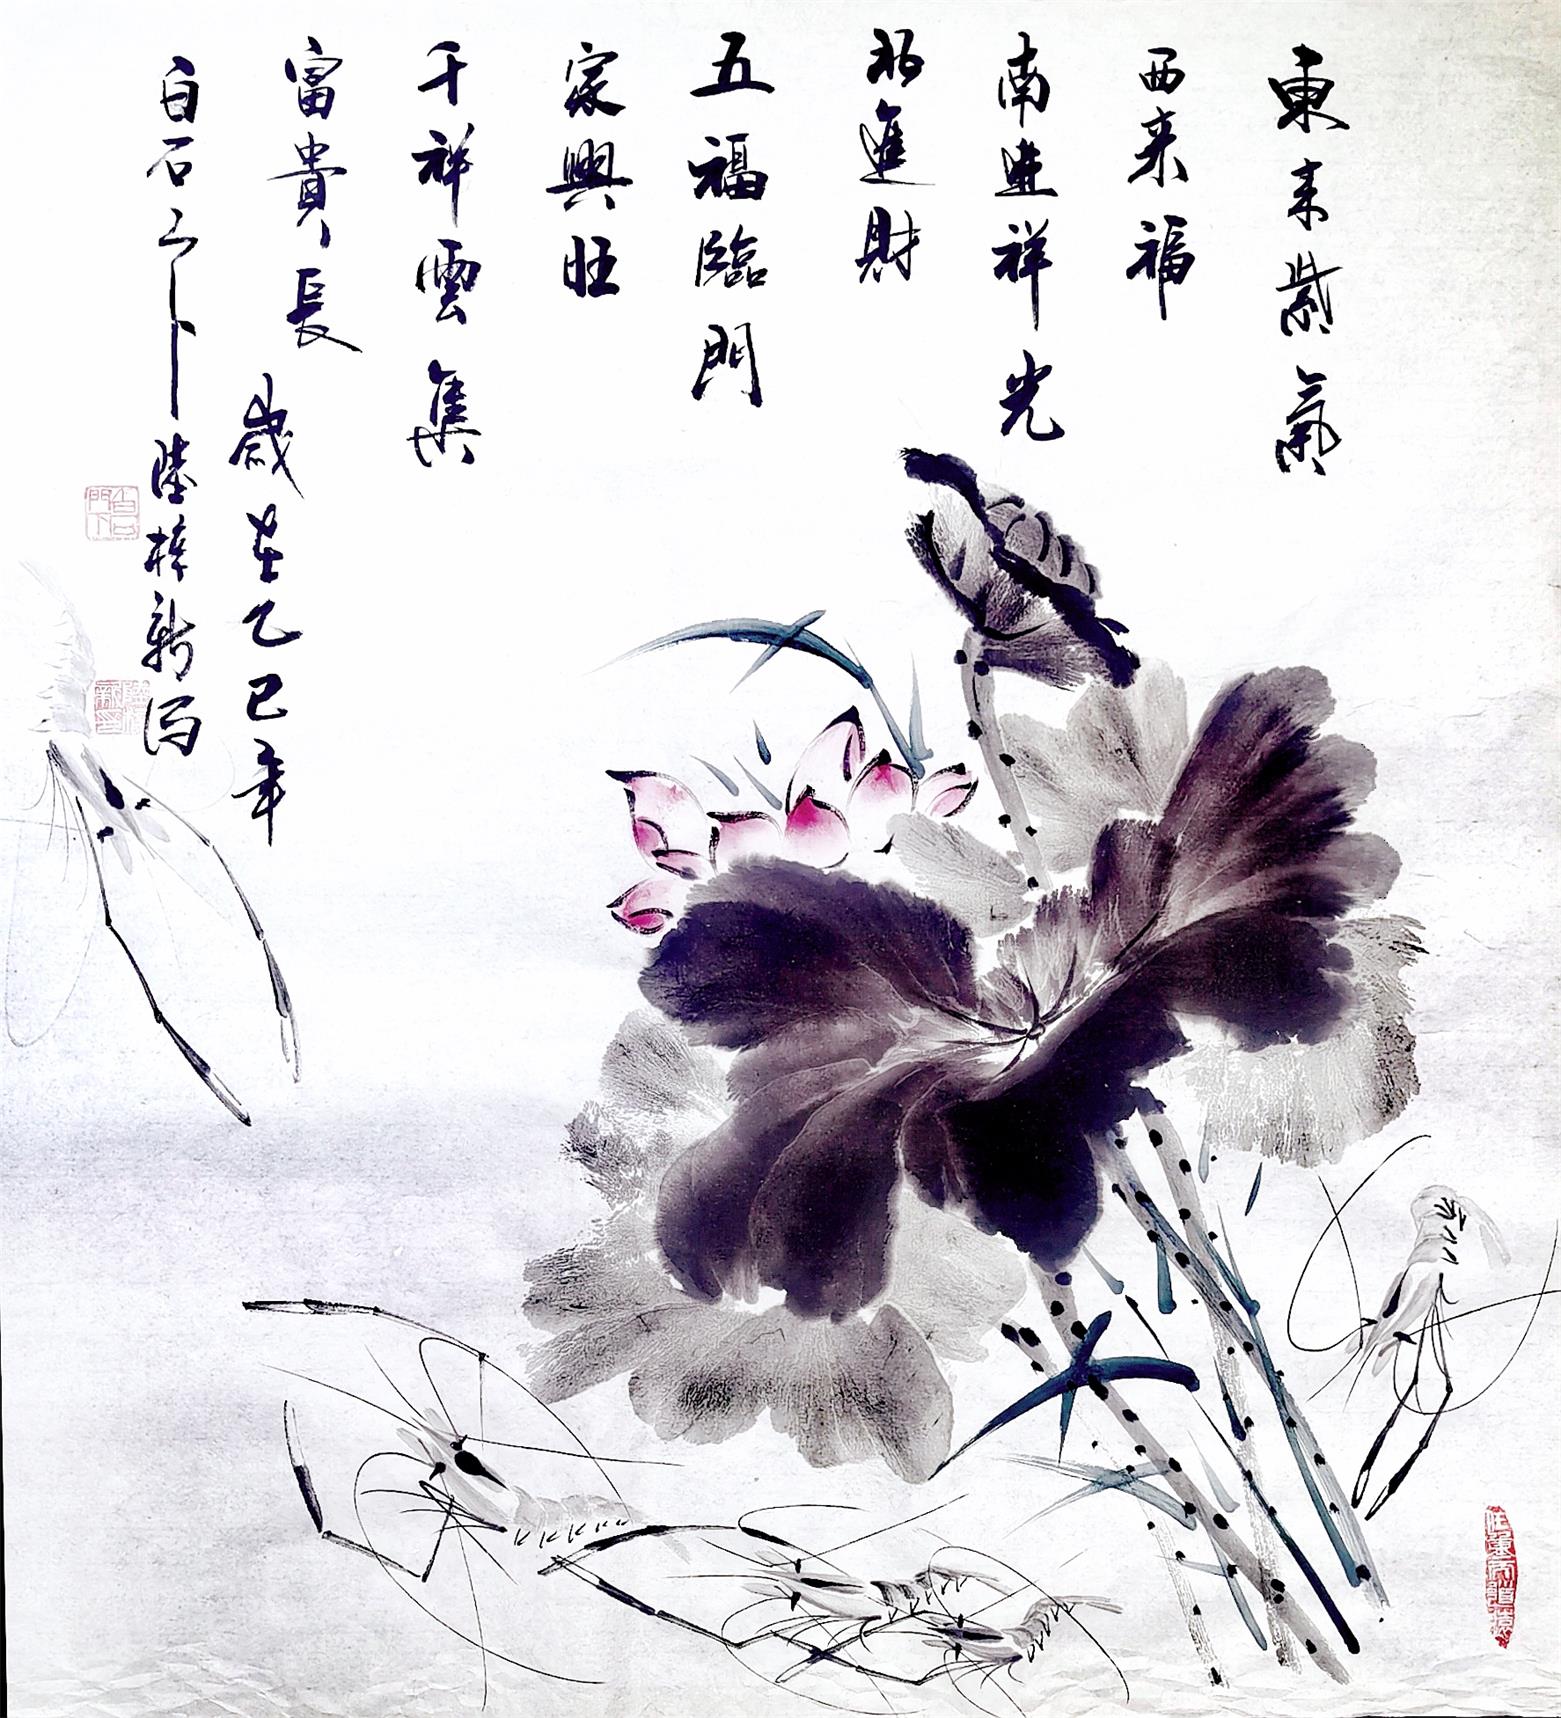 東来紫氣
西来福
南進祥光
北進財
五福臨門
家興旺
千祥雲集
富貴長
歲在乙巳年
白石 陸梓新写
白石門下